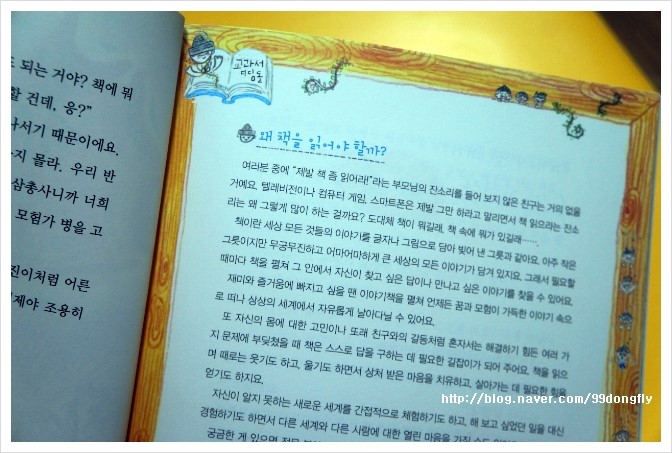 되는 거야? 책에 뭐
할 건데, 응?"
나서기 때문이에요.
지 몰라. 우리 반
삼총사니까 너희
모험가 병을 고
진이처럼 어른
제야 조용히
교과서
디딤돌
왜 책을 읽어야 할까?
여러분 중에 "제발 책 좀 읽어라!"라는 부모님의 잔소리를 들어 보지 않은 친구는 거의 없을
거예요. 텔레비전이나 컴퓨터 게임, 스마트폰은 제발 그만 하라고 말리면서 책 읽으라는 잔소
리는 왜 그렇게 많이 하는 걸까요? 도대체 책이 뭐길래, 책 속에 뭐가 있길래…….
책이란 세상 모든 것들의 이야기를 글자나 그림으로 담아 빚어 낸 그릇과 같아요. 아주 작은
그릇이지만 무궁무진하고 어마어마하게 큰 세상의 모든 이야기가 담겨 있지요. 그래서 필요할
때마다 책을 펼쳐 그 안에서 자신이 찾고 싶은 답이나 만나고 싶은 이야기를 찾을 수 있어요.
재미와 즐거움에 빠지고 싶을 땐 이야기책을 펼쳐 언제든 꿈과 모험이 가득한 이야기 속으
로 떠나 상상의 세계에서 자유롭게 날아다닐 수 있어요.
또 자신의 몸에 대한 고민이나 또래 친구와의 갈등처럼 혼자서는 해결하기 힘든 여러 가
지 문제에 부딪쳤을 때 책은 스스로 답을 구하는 데 필요한 길잡이가 되어 주어요. 책을 읽으
며 때로는 웃기도 하고, 울기도 하면서 상처 받은 마음을 치유하고, 살아가는 데 필요한 힘을
얻기도 하지요.
자신이 알지 못하는 새로운 세계를 간접적으로 체험하기도 하고, 해 보고 싶었던 일을 대신
경험하기도 하면서 다른 세계와 다른 사람에 대한 열린 마음을 가질 수도
궁금한 게 있으면
http://blog.naver.com/99dongfly